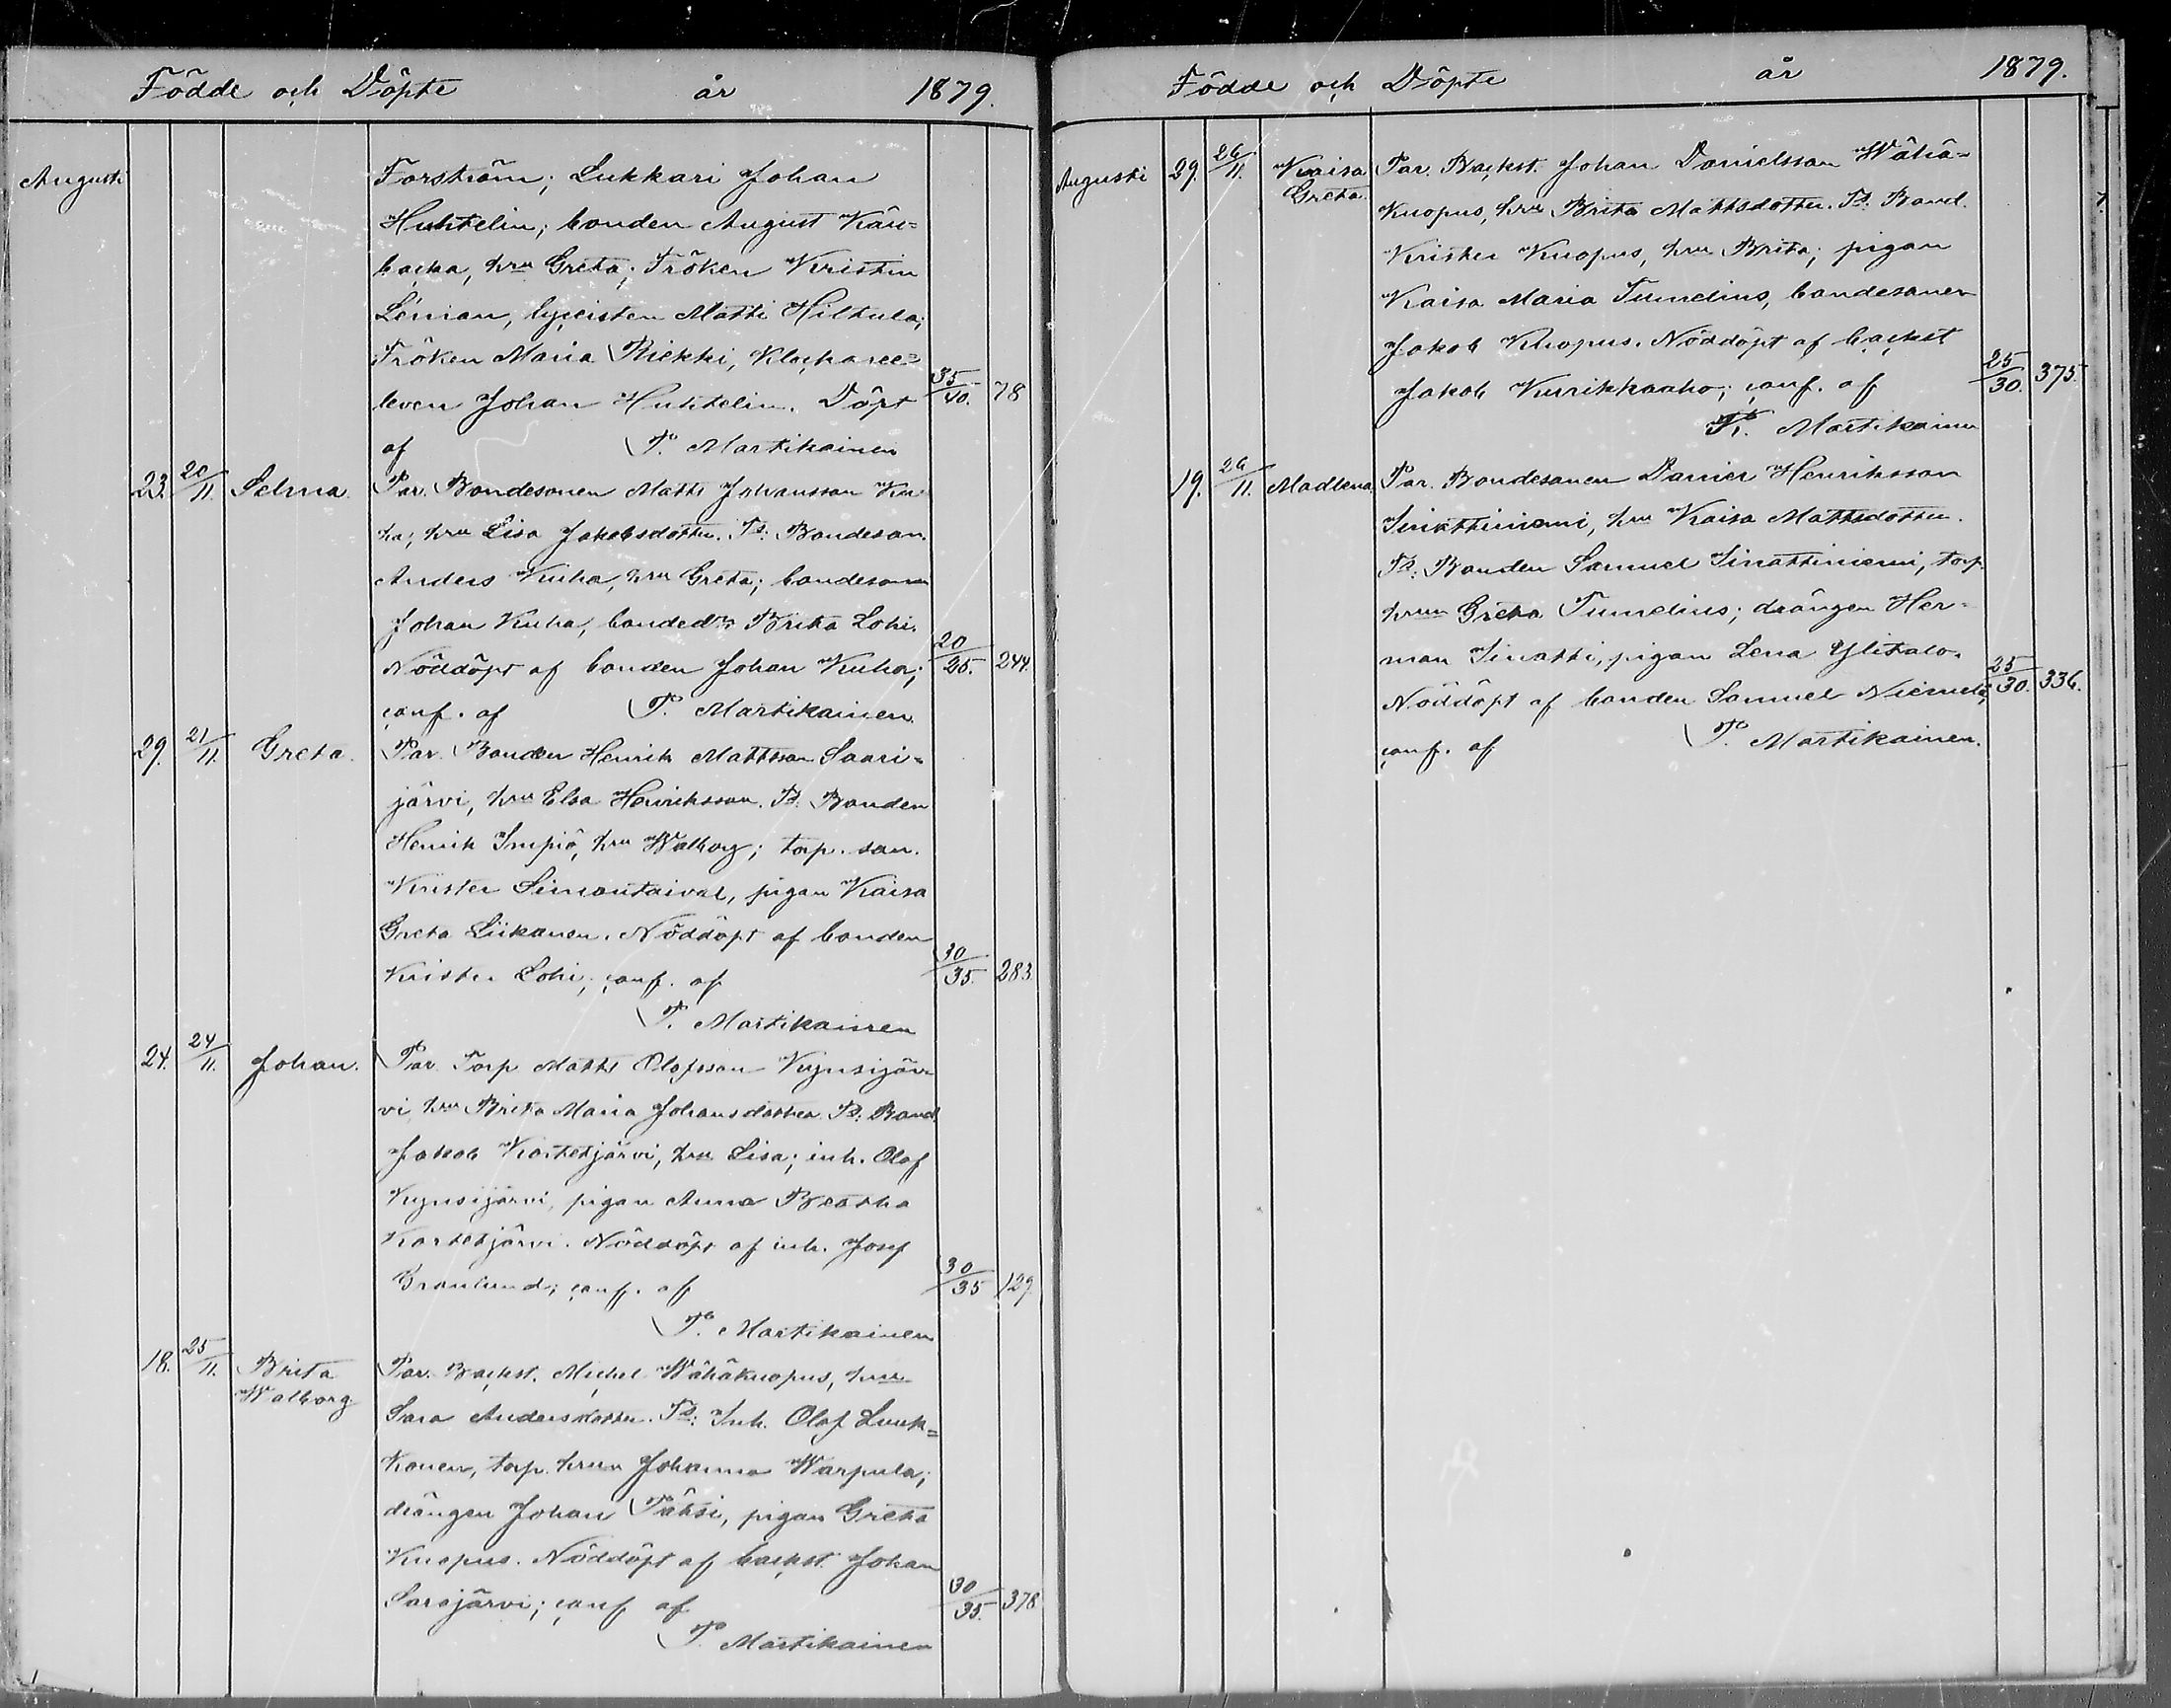 Födde och Döpte år 1879.
Augusti
Forström; Lukkari Johan
Huhtelin; bonden August Kär-
backa, hru Greta; Fröken Kristin
Lénian, lyceisten Matti Hiltula;
Fröken Maria Riekki, Klockaree-
leven Johan Huhtelin. Döpt 35/40. 78
af P. Martikainen
23. 20/11. Selma. Par. Bondesonen Matts Johansson Ku-
ha; hru Lisa Jakobsdotter. T: Bondeson.
Anders Kuha, hru Greta; bondesonen
Johan Kuha, bonded:r Brita Lohi.
Nöddöpt af bonden Johan Kuha; 20/25. 244.
conf. af P. Martikainen.
29. 21/11. Greta. Par. Bonden Henrik Mattsson Saari-
järvi, hru Elsa Henriksson. T: Bonden
Henrik Impiö, hru Walborg; torp. son.
Krister Simontaival, pigan Kaisa
Greta Liikanen. Nöddöpt af bonden
Krister Lohi; conf. af 30/35. 283.
P. Martikainen
24. 24/11. Johan. Par. Torp Matts Olofsson Kynsijär-
vi, hru Brita Maria Johansdotter. T: Bond.
Jakob Kortetjärvi, hru Lisa; inh. Olof
Kynsijärvi, pigan Anna Beatha
Kortetjärvi. Nöddöpt af inh. Josef
Granlund; conf. af 30/35 129.
P. Martikainen
18. 25/11. Brita Par. Backst. Michel Wähäkuopus, hru
Walborg Sara Andersdotter. T: Inh. Olof Luuk-
konen, torp. hru Johanna Warpula;
drängen Johan Pätsi, pigan Greta
Kuopus. Nöddöpt af backst. Johan
Sarajärvi; conf af 30/35. 378
P. Martikainen
Födde och Döpte år 1879.
Augusti 29. 26/11. Kaisa Par. Backst. Johan Danielsson Wähä-
Greta. kuopus, hru Brita Mattsdotter. T: Bond.
Krister Kuopus, hru Brita; pigan
Kaisa Maria Tuundius, bondesonen
Jakob Kuopus. Nöddöpt af backst
Jakob Kurikkaaho; conf. af 25/30. 375.
P. Martikainen
19. 26/11. Madlena. Par. Bondesonen Daniel Henriksson
Sinättiniemi, hru Kaisa Mattsdotter.
T: Bonden Samuel Sinattiniemi, torp.
hrun Greta Tuundius; drängen Her-
man Sinatti, pigan Lena Ylitalo.
Nöddöpt af bonden Samuel Niemelä; 25/30. 336.
conf. af P. Martikainen.